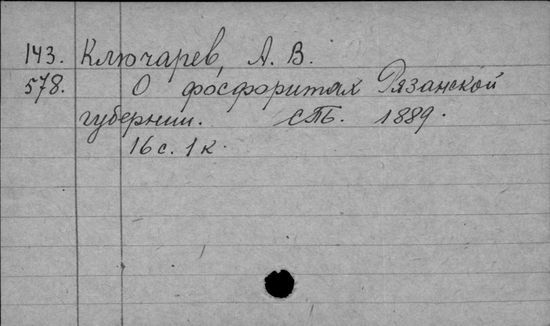 143. Ключарев, А. В.
578. О фосфоритах Рязанской
губернии. СПб. 1889.
16 с. 1 к.